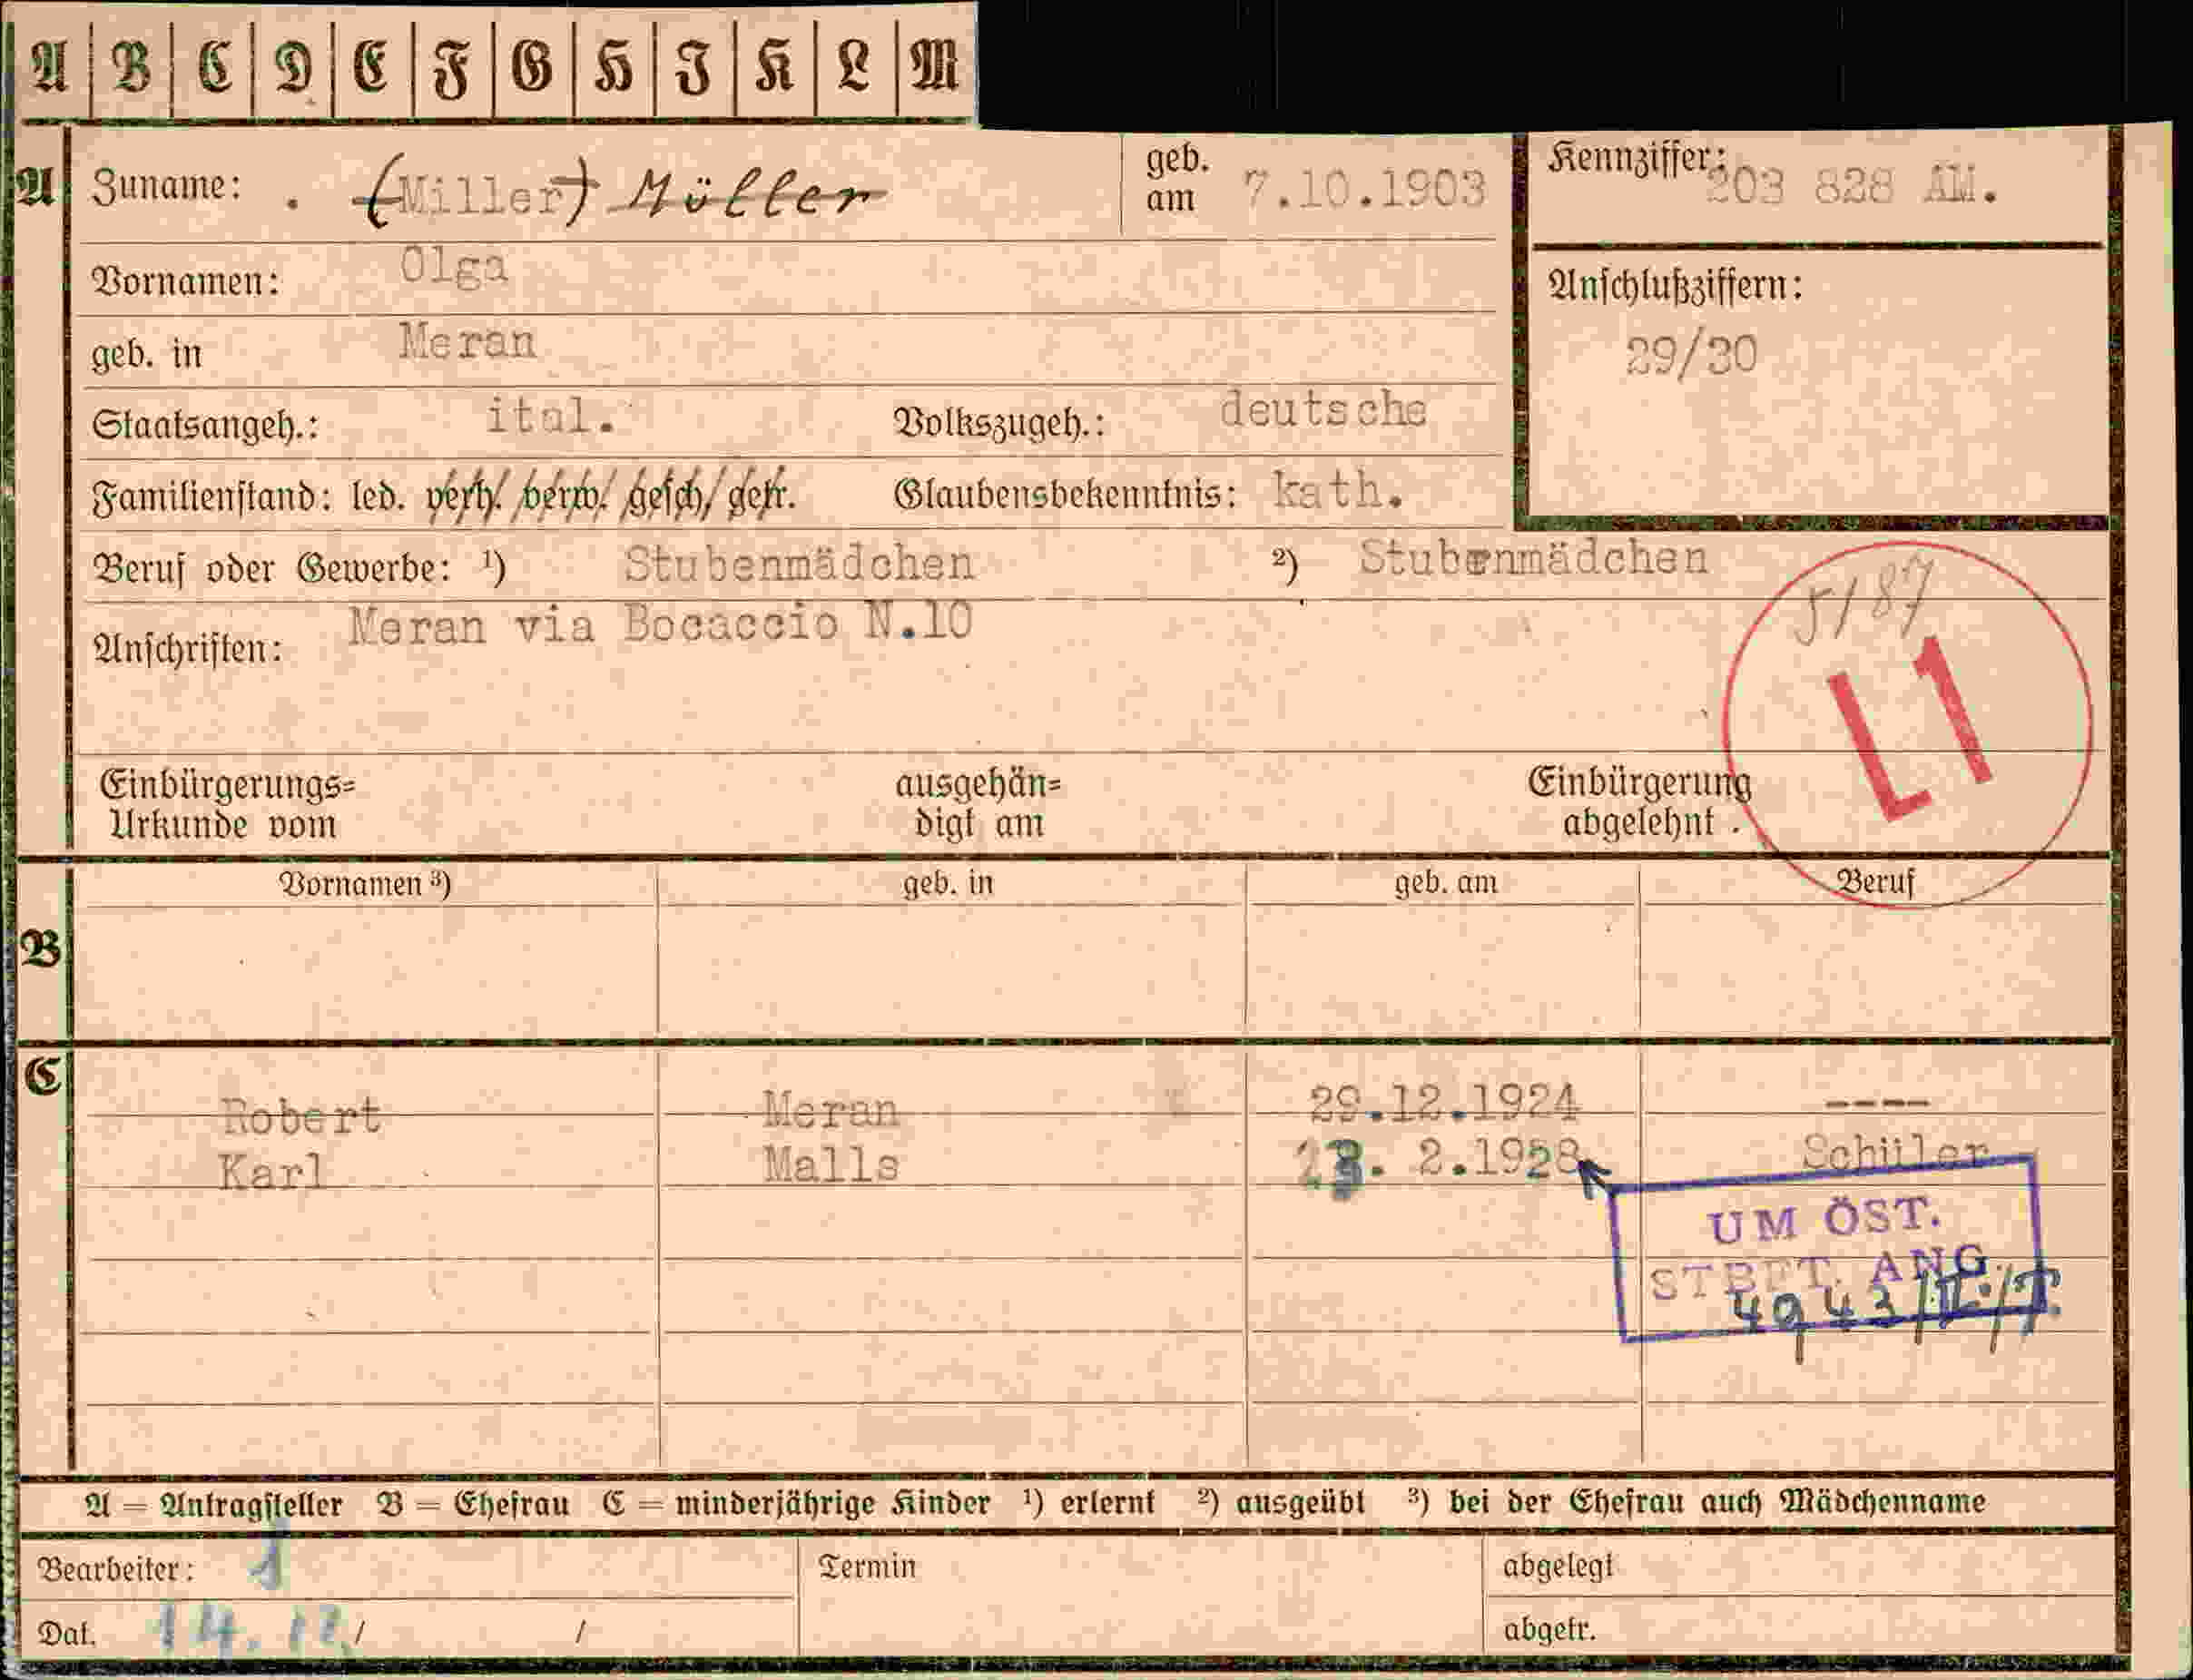 A B C D E F G H I K L M
A Zuname: . (Miller) Müller geb. am 7.10.1903 Kennziffer: 203 828 AM.
Vornamen: Olga
Anschlußziffern:
geb. in Meran 29/30
Staatsangeh.: ital. Volkszugeh.: deutsche
Familienstand: led. verh. verw. gesch. getr. Glaubensbekenntnis: kath.
Beruf oder Gewerbe: ¹) Stubenmädchen ²) Stubenmädchen
5/87
Anschriften: Meran via Bocaccio N.10
L1
Einbürgerungs= ausgehän= Einbürgerung
Urkunde vom digt am abgelehnt .
Vornamen ³) geb. in geb. am Beruf
B
C
Robert Meran 29.12.1924 ----
Karl Malls 2.1928 Schüler
UM ÖST.
STBFT. ANG.
4943/II./T.
A = Antragsteller B = Ehefrau C = minderjährige Kinder ¹) erlernt ²) ausgeübt ³) bei der Ehefrau auch Mädchenname
Bearbeiter: 1 Termin abgelegt
Dat. 14.12. / / abgetr.